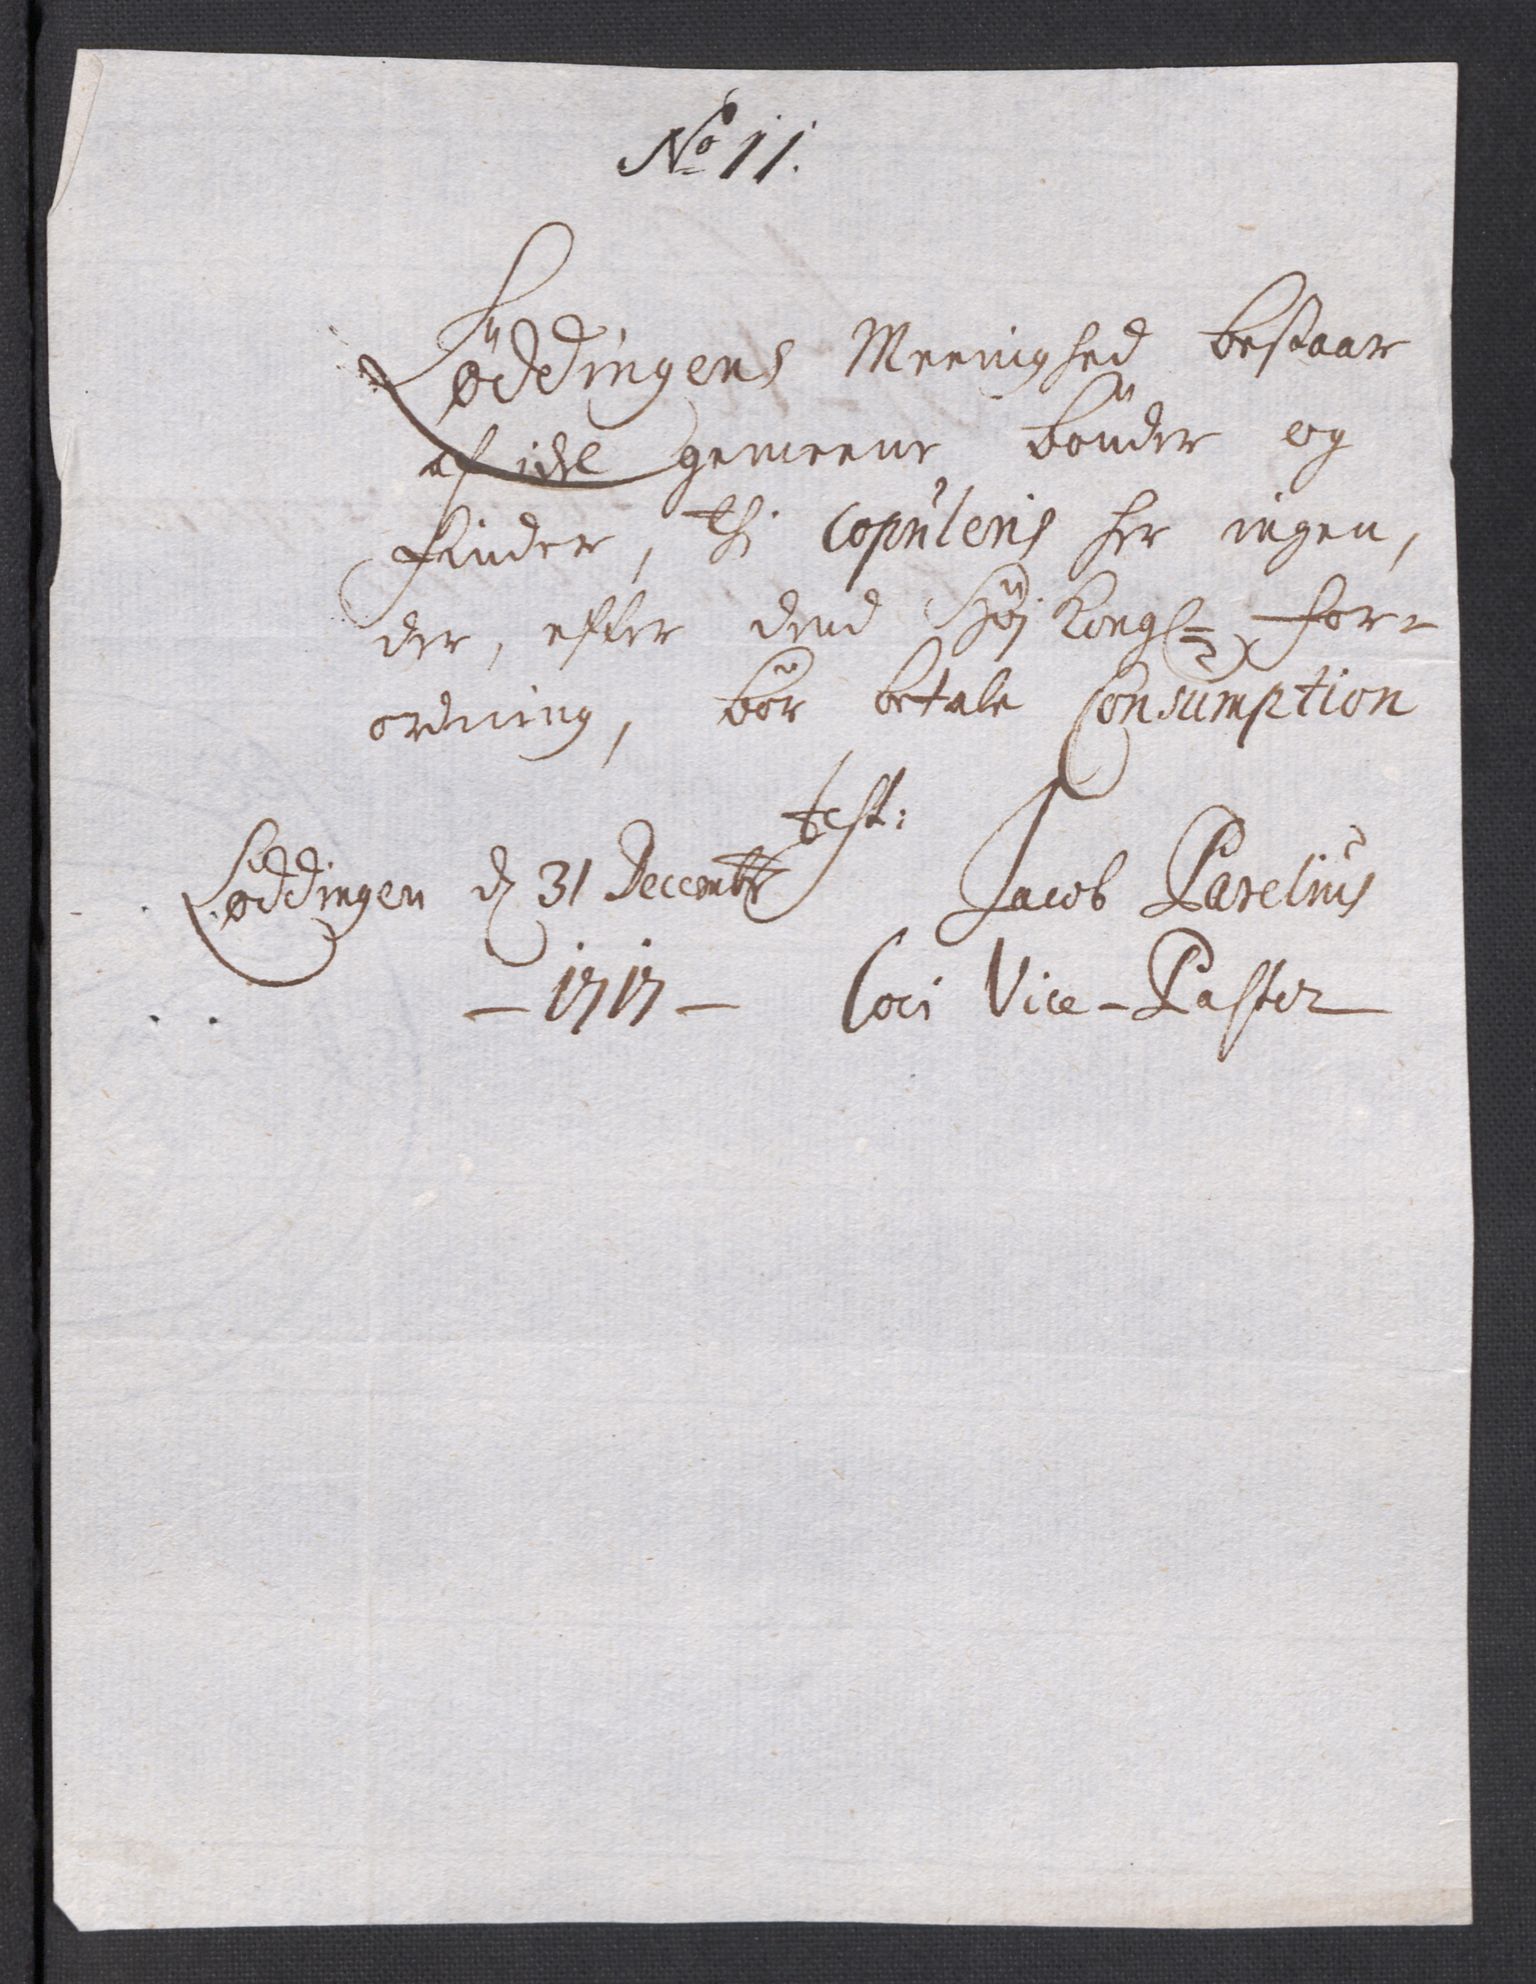 No 11.
Løddingens Meenighed bestaar
af idel gemeene bönder og
finder, thi copuleris her ingen,
der, efter dend Høj Kongl: for-
ordning, bör betale Consumption
test:
Løddingen d 31 Decembr Jacob Parelius
- 1717 - Loci Vice-Pastor